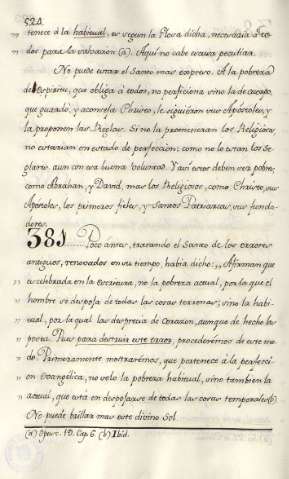 524.
tenece á la habitual, es segun la Glosa dicha, necesaria á to-
dos para la salvacion (a). Aquí no cabe escusa
No puede estar el Santo mas expreso. A la pobreza
de Espiritu, que obliga á todos, no perficiona sino la de
que guardó, y aconseja Christo, le siguieron sus Apostoles, y
la proponen las Reglas. Si no la prometieran los Religiosos,
no estarian en estado de perfeccion: como no le estan los Se-
glares aun con esa buena voluntad. Y así estos deben ser pobres,
como Abrahan, y David, mas los Religiosos, como Christo, sus
Apostoles, los primeros fieles, y Santos Patriarcas, sus funda-
dores.
381. Poco antes, tratando el Santo de los errores
antiguos, renovados en su tiempo, había dicho: „ Afirman que
„ es alabada en la Escritura, no la pobreza actual, por la que el
hombre se despoja de todas las cosas terrenas; sino la habi-
tual, por la qual las desprecia de corazon, aunque de hecho las
posea. Pues para destruir este error, procederémos de este mo-
do. Primeramente mostrarémos, que pertenece á la perfecci-
on Evangélica, no solo la pobreza habitual, sino tambien la
actual, que está en despojarse de todas las cosas temporales (b).
No puede brillar mas este divino Sol.
(a) Opusc. 19. Cap. 6. (b) Ibid.